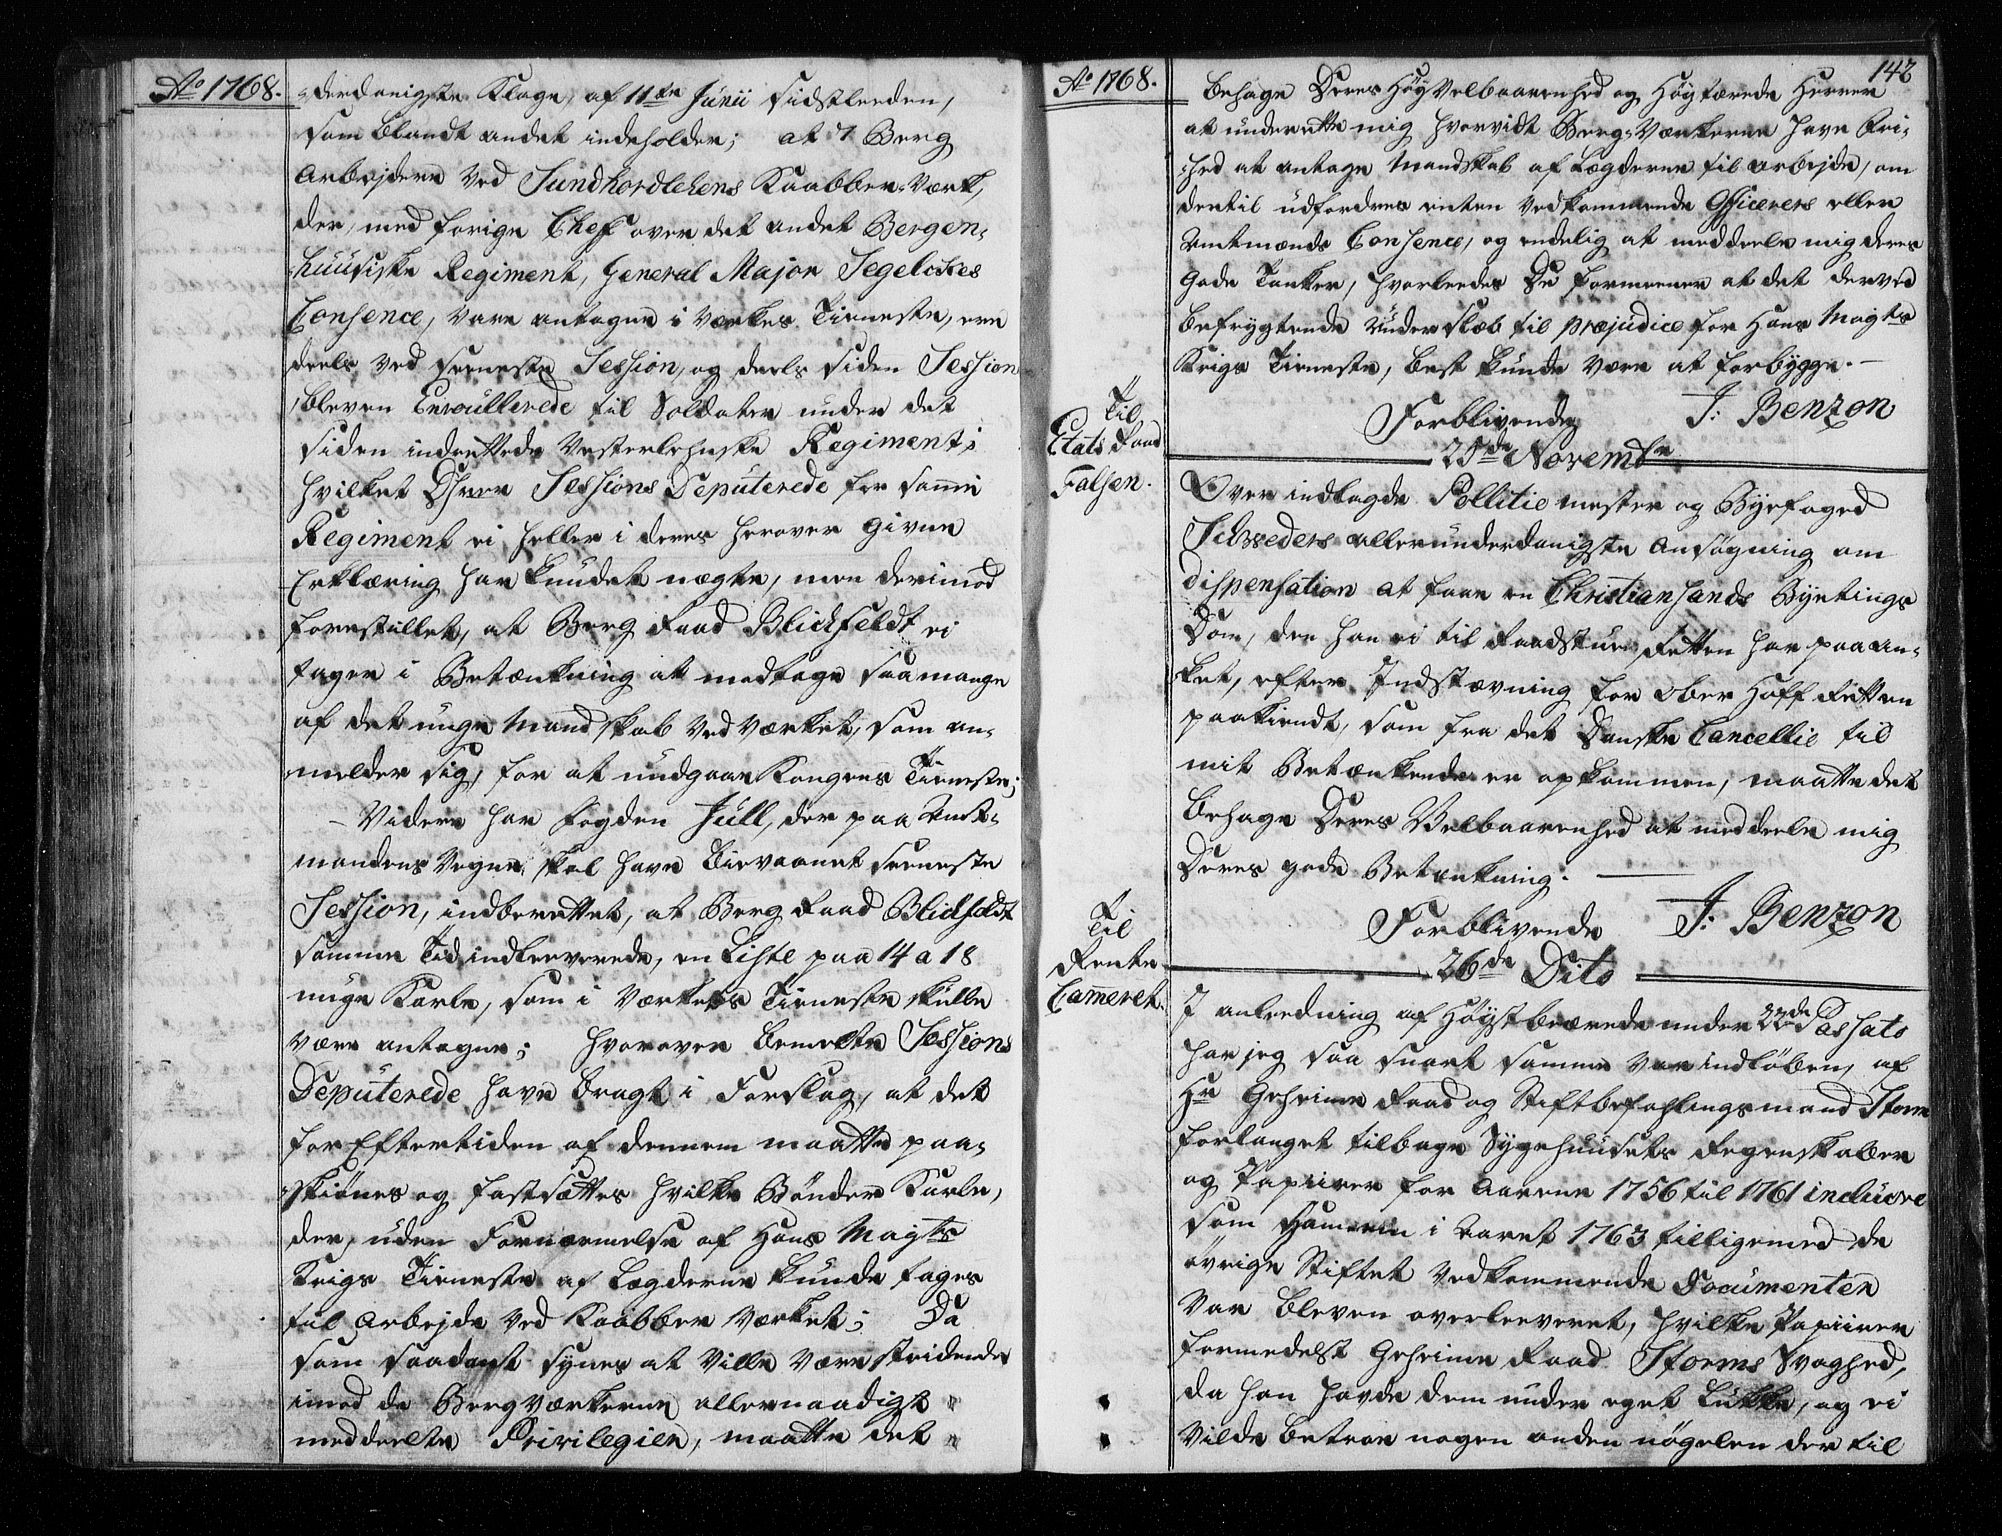 Ao 1768.
-derdanigste Klage, af 11te Junii sidstleeden,
som blandt andet indeholder; at 7 Berg
Arbejdere ved Sundhordlehens Kaabber-Værk,
der, med forige Chef over det andet Bergen-
huusiske Regiment, General Major Segelckes
Consence, vare antagne i Værkes Tieneste, ere
deels ved seeneste Session, og deels siden Session
bleven Enroullerede til Soldater under det
siden indrettede Vesterlehnske Regiment;
hvilket Sessions Deputerede for samme
Regiment ei heller i deres herover givne
Erklæring har kundet nægte, men derimod
forestillet, at Berg Raad Blichfeldt ei
tager i Betænkning at modtage saa mange
af det unge Mandskab ved Værket, som an-
melder sig, for at undgaae Kongens Tieneste;
- Videre har Fogden Jull, der paa Amt-
mandens Vegne skal have bievaanet seeneste
Session, indberettet, at Berg Raad Blichfeldt
samme Tid indleverede, en Liste paa 14 a 18
unge Karle, som i Værkets Tieneste skulle
være antagne; hvorover bemelte Sessions
Deputerede have bragt i Forslag, at det
for Eftertiden af dennem maatte paa-
skiønes og fastsættes hvilke Bønder Karle,
der, uden Fornærmelse af Hans Maytts
Krigs Tieneste af Lægderne kunde tages
til Arbejde ved Kaabber Værket; Da
som saadant synes at ville være stridende
imod de Bergværkerne allernaadigst
meddeelte Privilegien, maatte det
Ao 1768.
142
behage Deres Høy Velbaarenhed og Høylærede Herrer
at underrette mig hvorvidt Berg-Værkerne have Fri-
hed at antage Mandskab af Lægderne til Arbejde, om
dertil udfordres enten vedkommende Officerers eller
Amtmænds Consence, og endelig at meddeele mig deres
gode Tanker, hvorleedes De formeener at det derved
befrygtende Underslæb til præjudice for Hans Maytts
Krigs Tieneste, best kunde være at forbygge.-
Forblivende J: Benzon
25de Novembr
Til
Etats Raad
Falsen.
Over indlagde Pollitiemester og Byefoged
allerunderdanigste Ansøgning om
dispensation at faae en Christiansands Byetings
Dom, den han ei til Raadstue Retten har paaan-
ket, efter Indstævning for Ober Hoff Retten
paakiendt, som fra det Danske Cancellie til
mit Betænkende er opkommen, maatte det
behage Deres Velbaarenhed at meddeele mig
Deres gode Betænkning.
Forblivende J: Benzon
26de Dito
Til
Rente
Cameret.
I anleedning af Høystbeærede under 22de Passato
har jeg saa snart samme var indløben, af
Hr Geheime Raad og Stiftbefahlingsmand Storm
forlanget tilbage Sygehuusets Regenskaber
og Papiirer for Aarene 1756 til 1761 inclusive
som ham i Aaret 1763 tilligemed de
øvrige Stiftet vedkommende Documenten
var bleven overleeveret, hvilke Papiirer
formedelst Geheime Raad Storms Svaghed,
da han havde dem under eget Lukke, og ei
vilde betroe nogen anden nøgelen der til